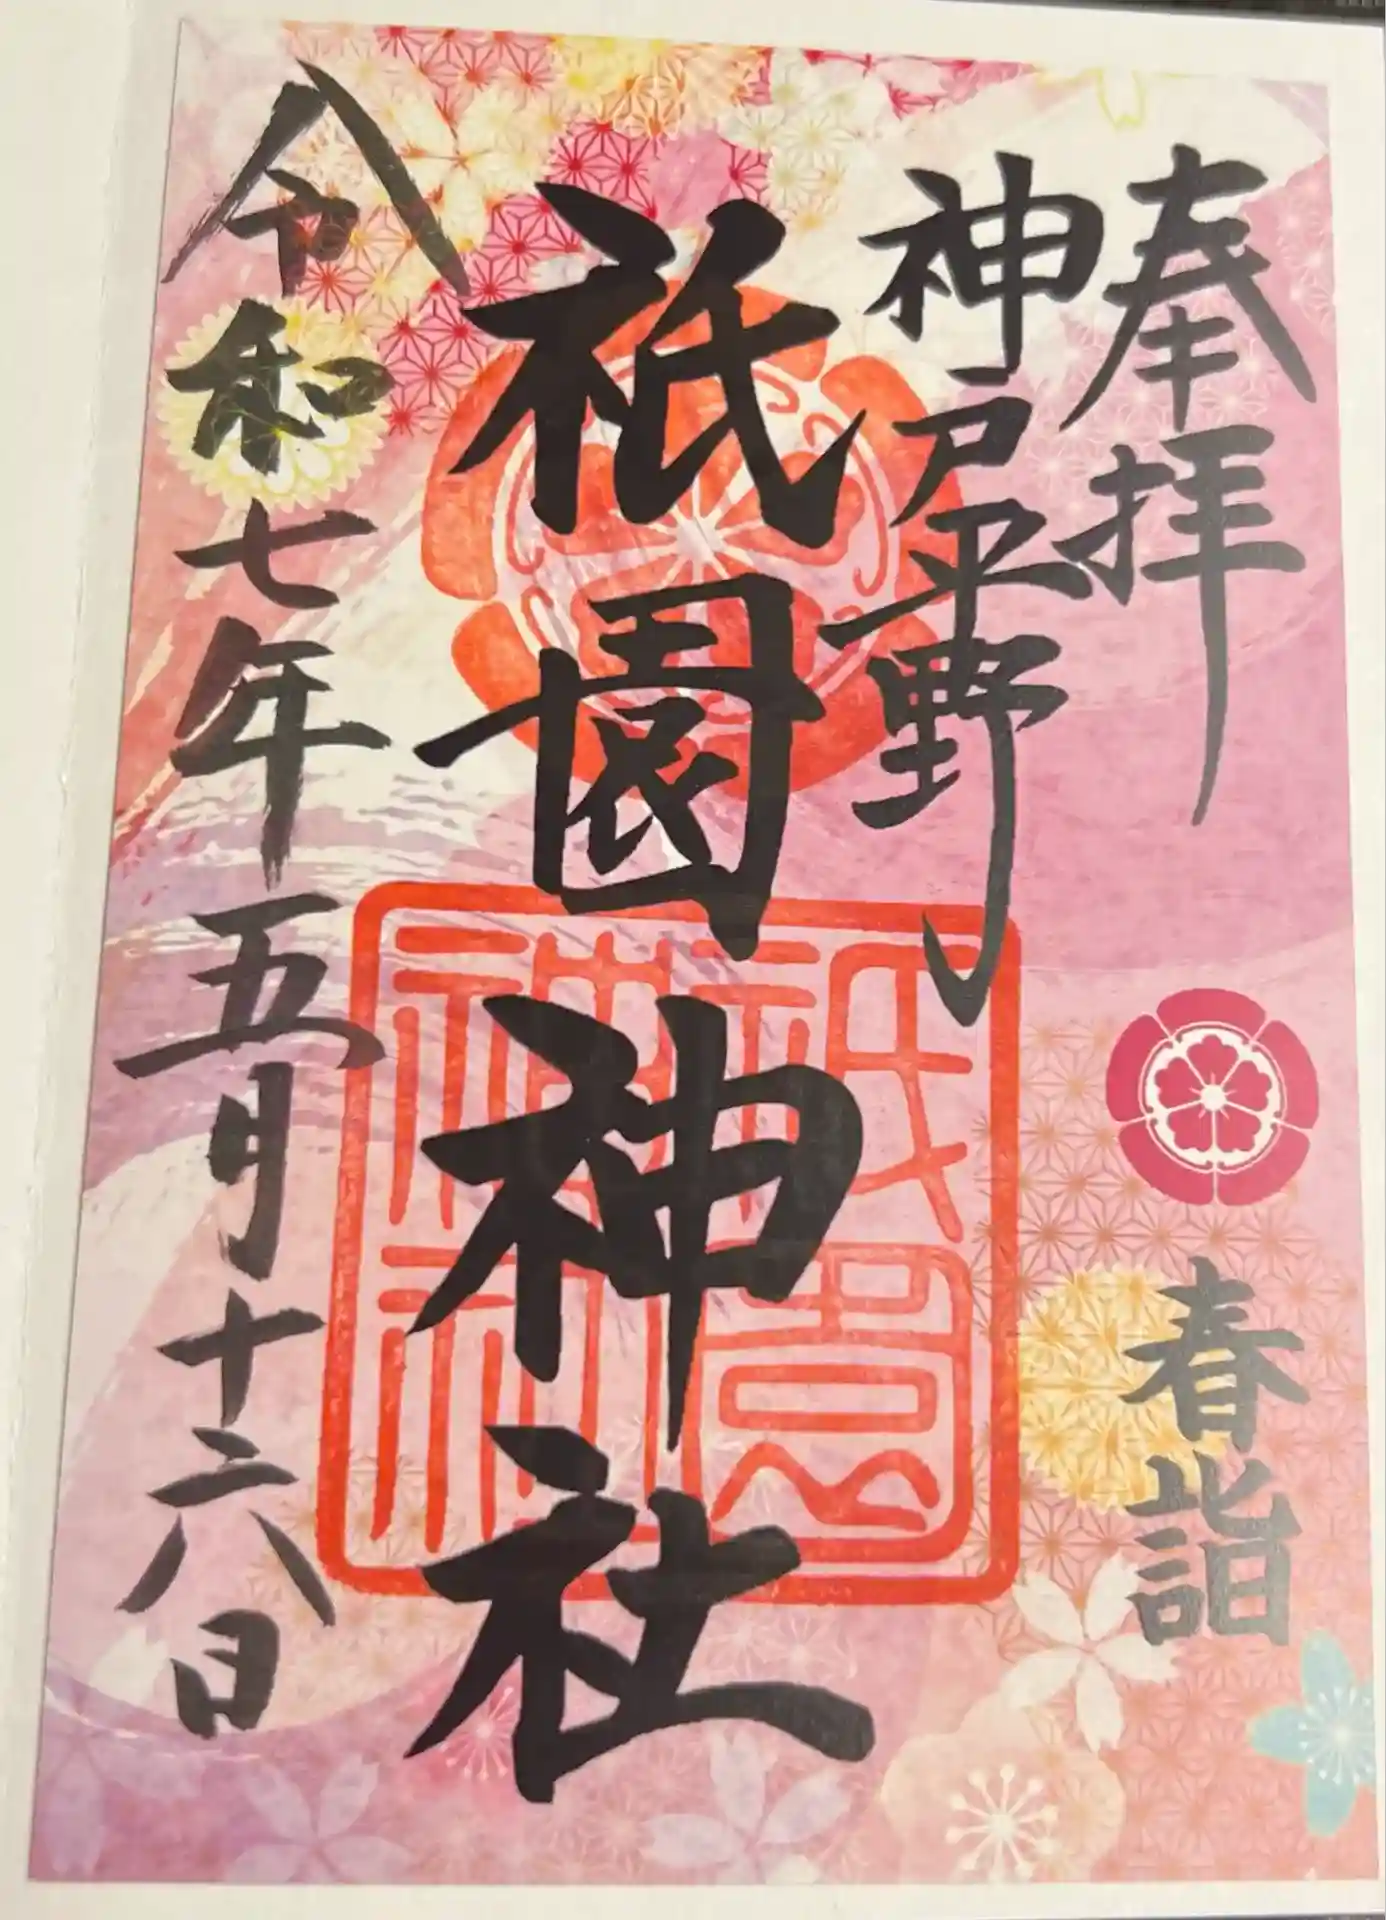 奉拝
春詣
神戸平野
祇園神社
祇園神社
令和七年五月十六日